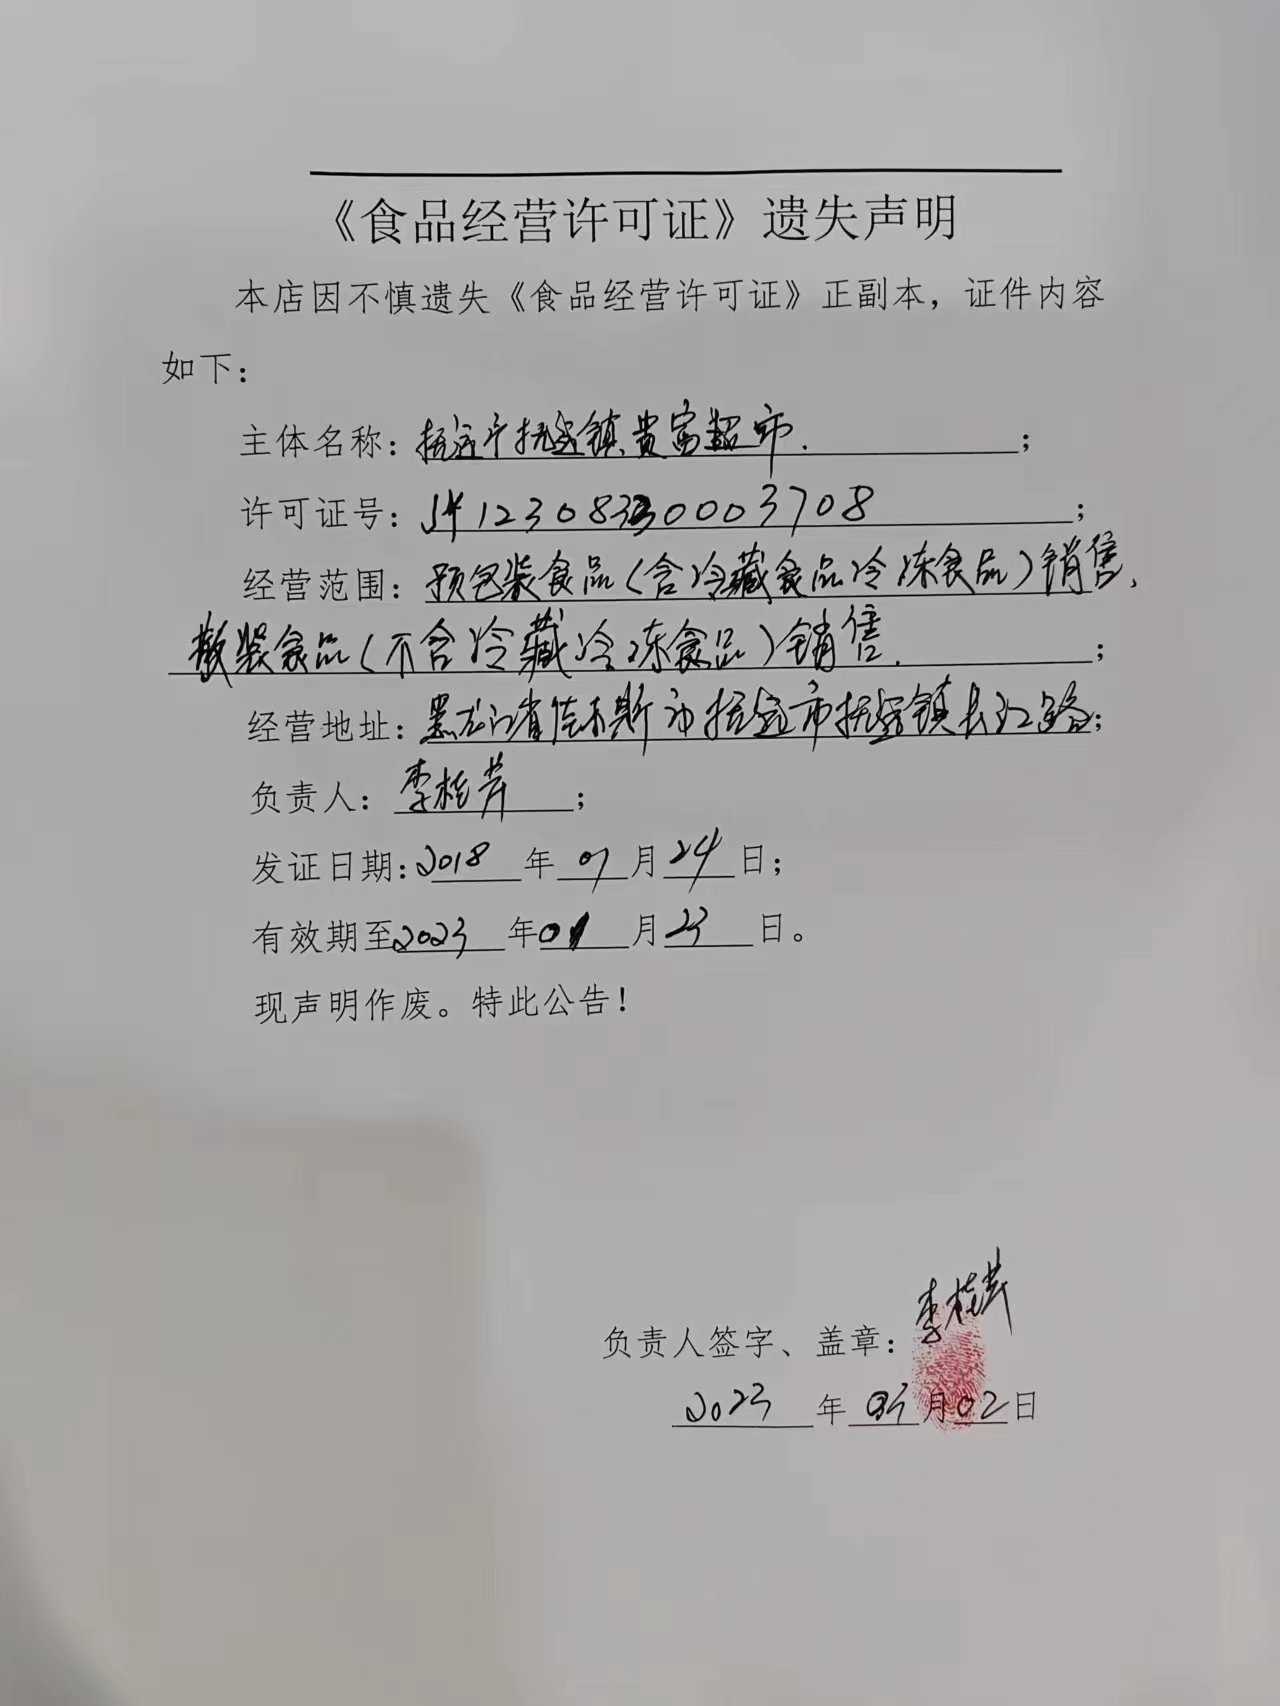 《食品经营许可证》遗失声明
本店因不慎遗失《食品经营许可证》正副本，证件内容
如下：
主体名称：抚远市抚远镇贵富超市.；
许可证号：JY12308330003708；
经营范围：预包装食品（含冷藏食品冷冻食品）销售、
散装食品（不含冷藏冷冻食品）销售.；
经营地址：黑龙江省佳木斯市抚远市抚远镇长江路；
负责人：李桂芳；
发证日期：2018年07月24日；
有效期至2023年07月23日。
现声明作废。特此公告！
负责人签字、盖章：李桂芳
2023年03月02日